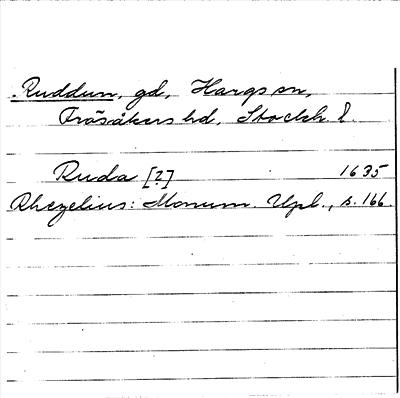 Ruddun, gd, Hargs sn,
Frösåkers hd, Stockh. l.
Ruda [?] 1635
Rhezelius: Monum. Upl., s. 166.